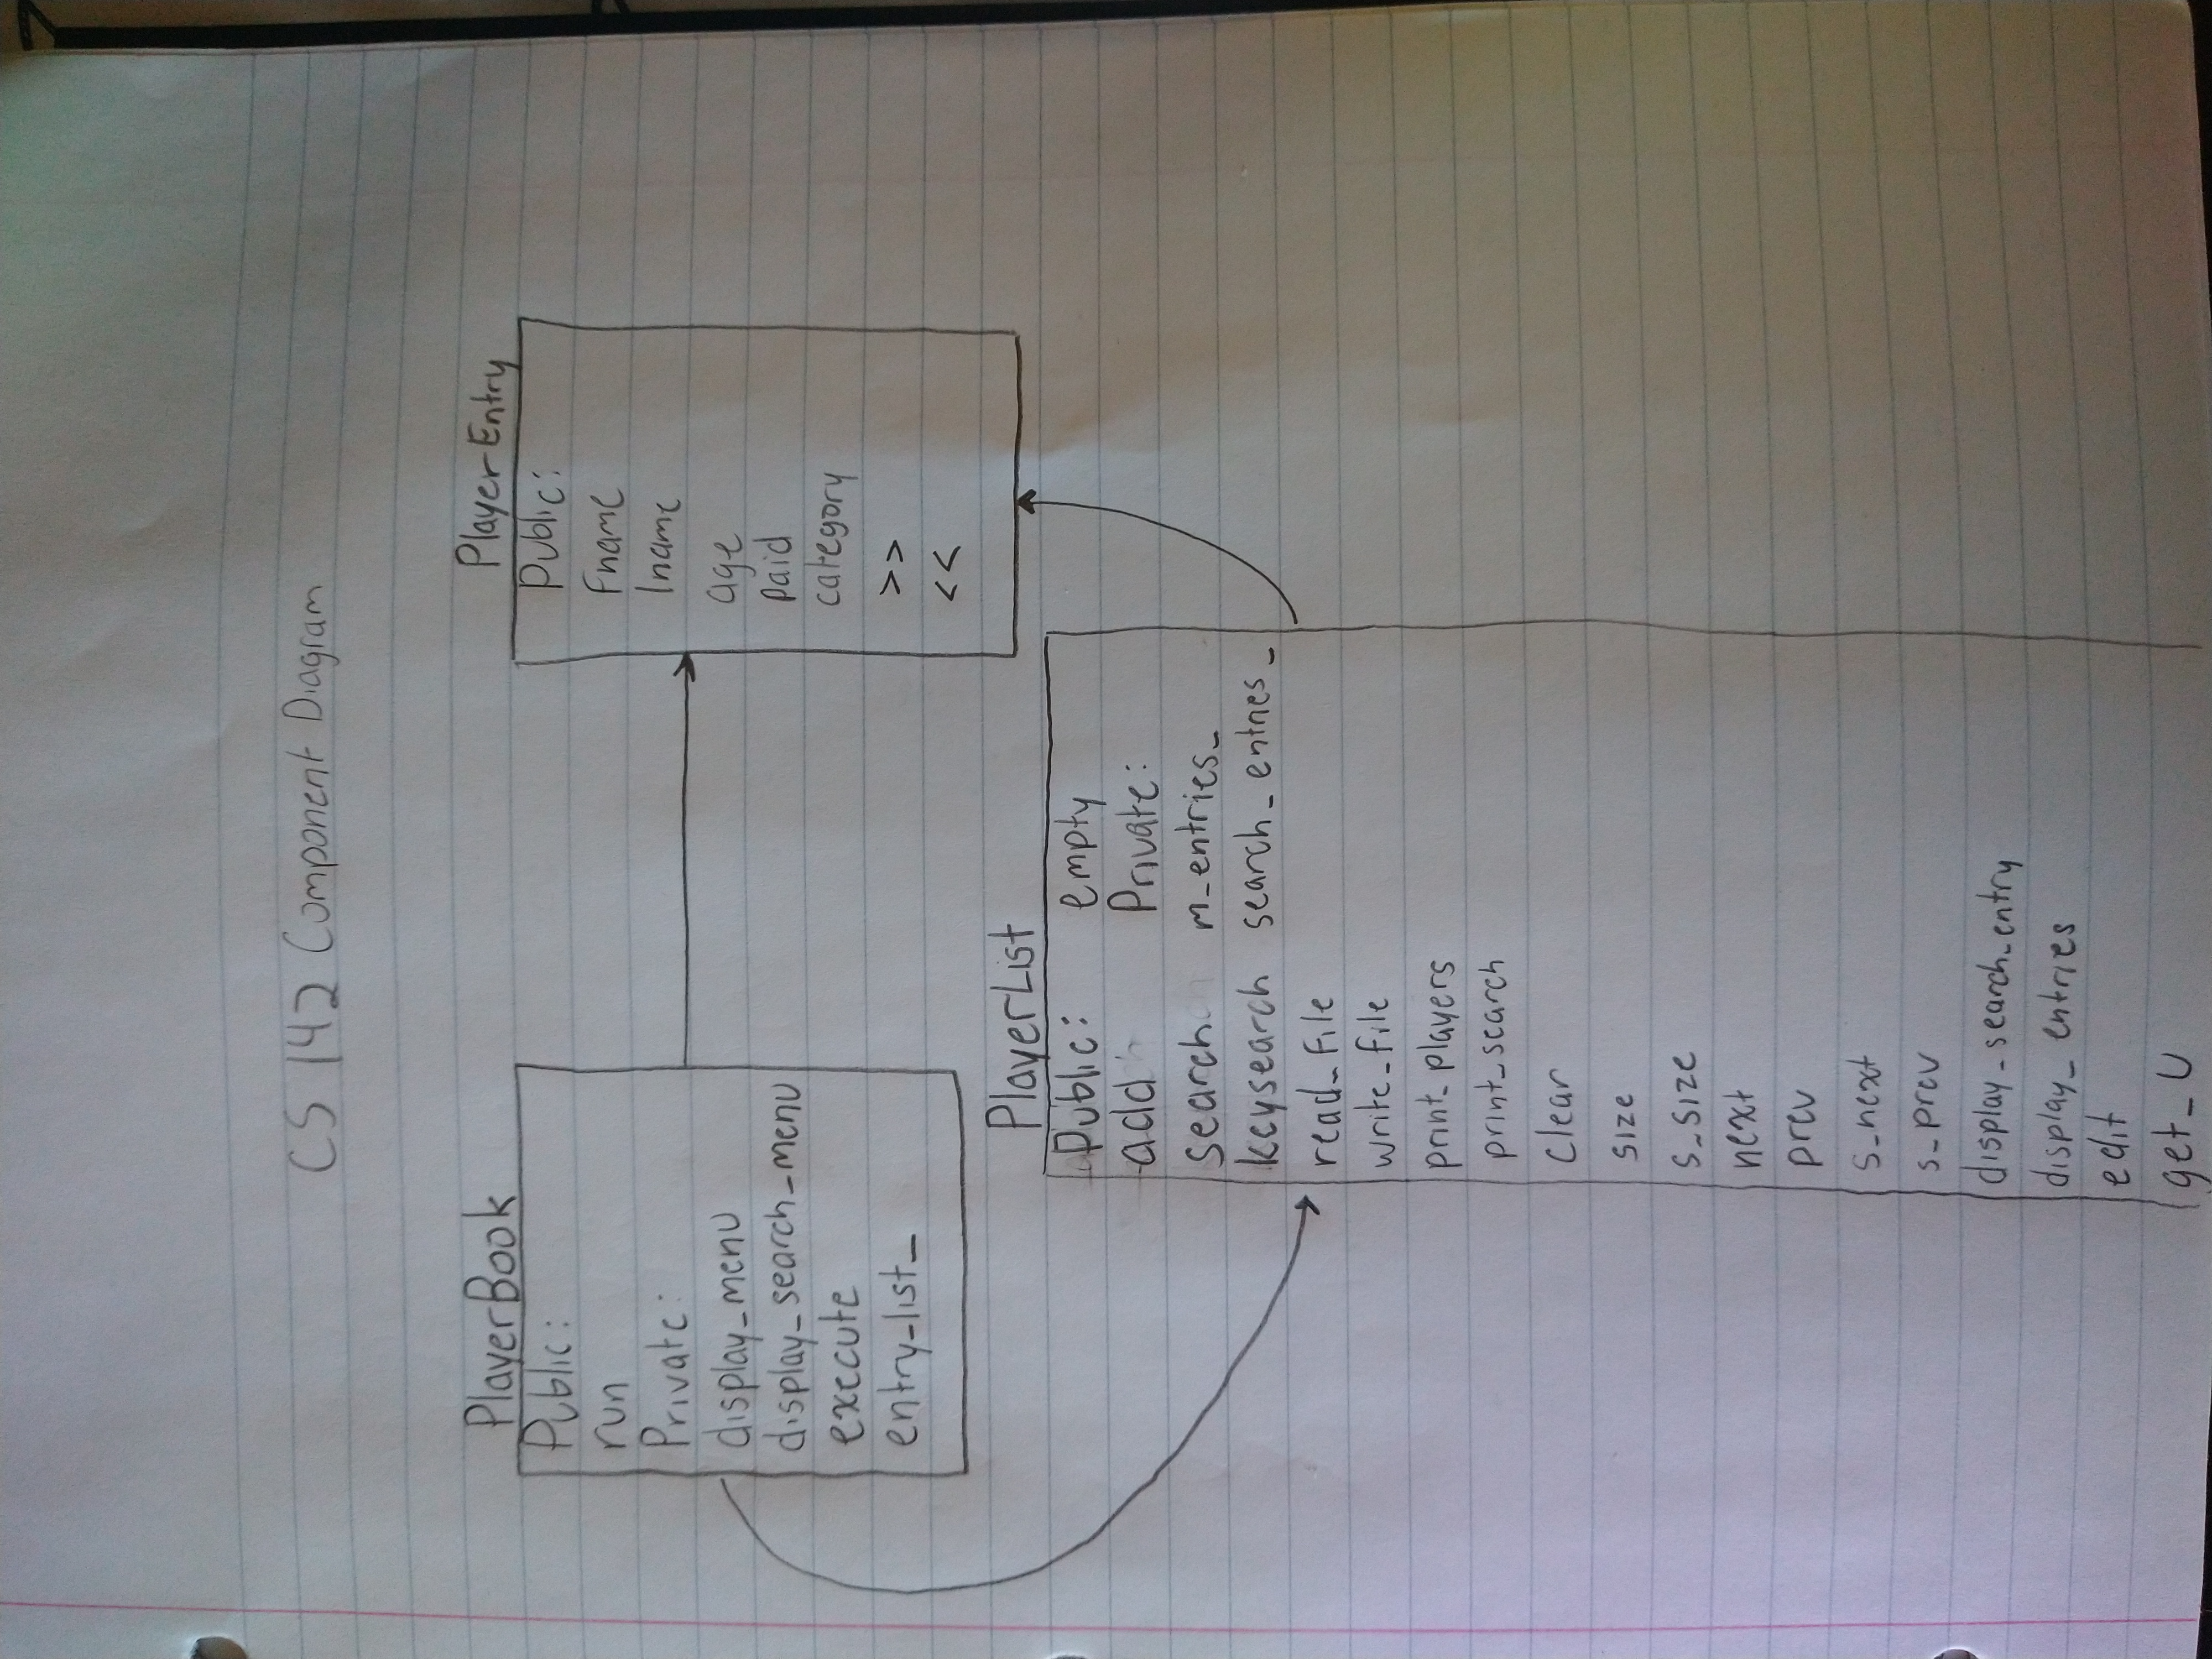 CS 142 Component Diagram
PlayerBook
Public:
run
Private:
display_menu
display_search_menu
execute
entry_list_
PlayerEntry
Public:
Fname
lname
age
paid
category
>>
<<
PlayerList
Public:
add
search
keysearch
read_file
write_file
print_players
print_search
clear
size
s_size
next
prev
s_next
s_prev
display_search_entry
display_entries
edit
get_U
empty
Private:
m_entries_
search_entries_